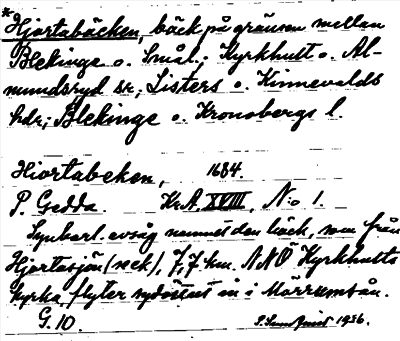 *Hjortabäcken, bäck på gränsen mellan
Blekinge o. Smål.; Kyrkhult o. Al-
mundsryd sr; Listers o. Kinnevalds
hdr; Blekinge o. Kronobergs l.
Hiortabeken, 1684.
P. Gedda. Kr.A. XVIII, N:o 1.
Uppbarl. ovsåg namnet den bäck, som från
Hjortasjön (sek), 7,7 km. NNÖ Kyrkhults
kyrka, flyter sydöstut in i Mörrumsån.
G. 10. 1936.